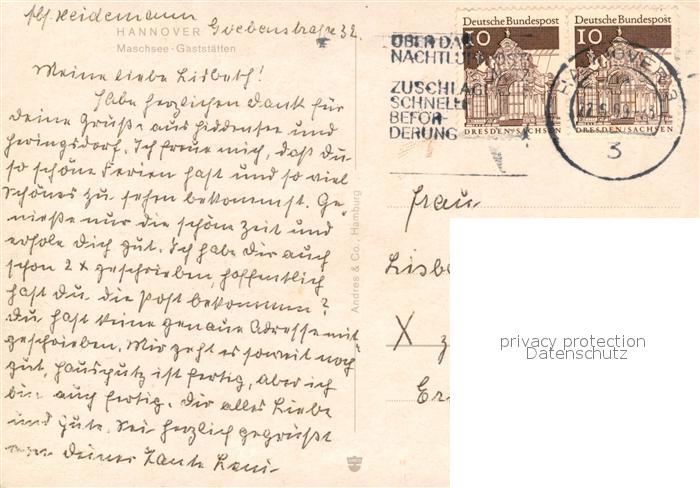 Abs. Heidemann
HANNOVER Goebenstraße 32.
Maschsee-Gaststätten
Meine liebe Lisbeth!
Habe herzlichen Dank für
Deine Grüße aus Hiddensee und
Heringsdorf. Ich freue mich, daß Du
so schöne Ferien hast und so viel
Schönes zu sehen bekommst. Ge-
nieße nur die schöne Zeit und
erhole Dich gut. Ich habe Dir auch
schon 2 x geschrieben, hoffentlich
hast Du die Post bekommen?
Du hast keine genaue Adresse mit
geschrieben. Mir geht es soweit noch
gut, Hausputz ist fertig, aber ich
bin auch fertig. Dir alles Liebe
und Gute. Sei herzlich gegrüßt
von Deiner Tante Leni
Andres & Co., Hamburg
ÜBER DAS
NACHTLUFT
ZUSCHLAG
SCHNELLE
BEFÖR-
DERUNG
Deutsche Bundespost
10
DRESDEN/SACHSEN
Deutsche Bundespost
10
DRESDEN/SACHSEN
HANNOVER
3
Frau
Lisb
X
Er
privacy protection
Datenschutz